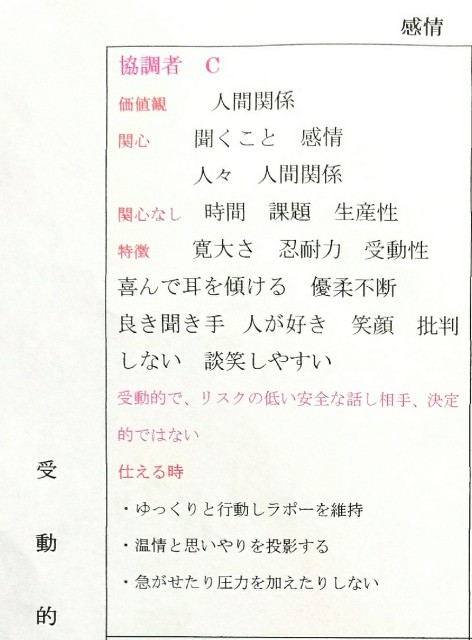 感情
協調者 C
価値観 人間関係
関心 聞くこと 感情
人々 人間関係
関心なし 時間 課題 生産性
特徴 寛大さ 忍耐力 受動性
喜んで耳を傾ける 優柔不断
良き聞き手 人が好き 笑顔 批判
しない 談笑しやすい
受動的で、リスクの低い安全な話し相手、決定
的ではない
仕える時
・ゆっくりと行動しラポーを維持
・温情と思いやりを投影する
・急がせたり圧力を加えたりしない
受動的